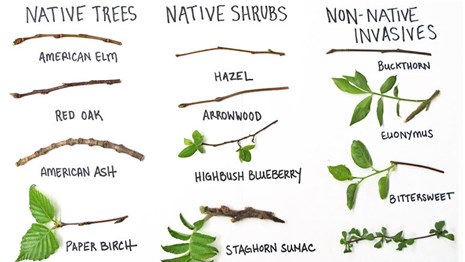 NATIVE TREES
AMERICAN ELM
RED OAK
AMERICAN ASH
PAPER BIRCH
NATIVE SHRUBS
HAZEL
ARROWWOOD
HIGHBUSH BLUEBERRY
STAGHORN SUMAC
NON-NATIVE
INVASIVES
BUCKTHORN
EUONYMUS
BITTERSWEET